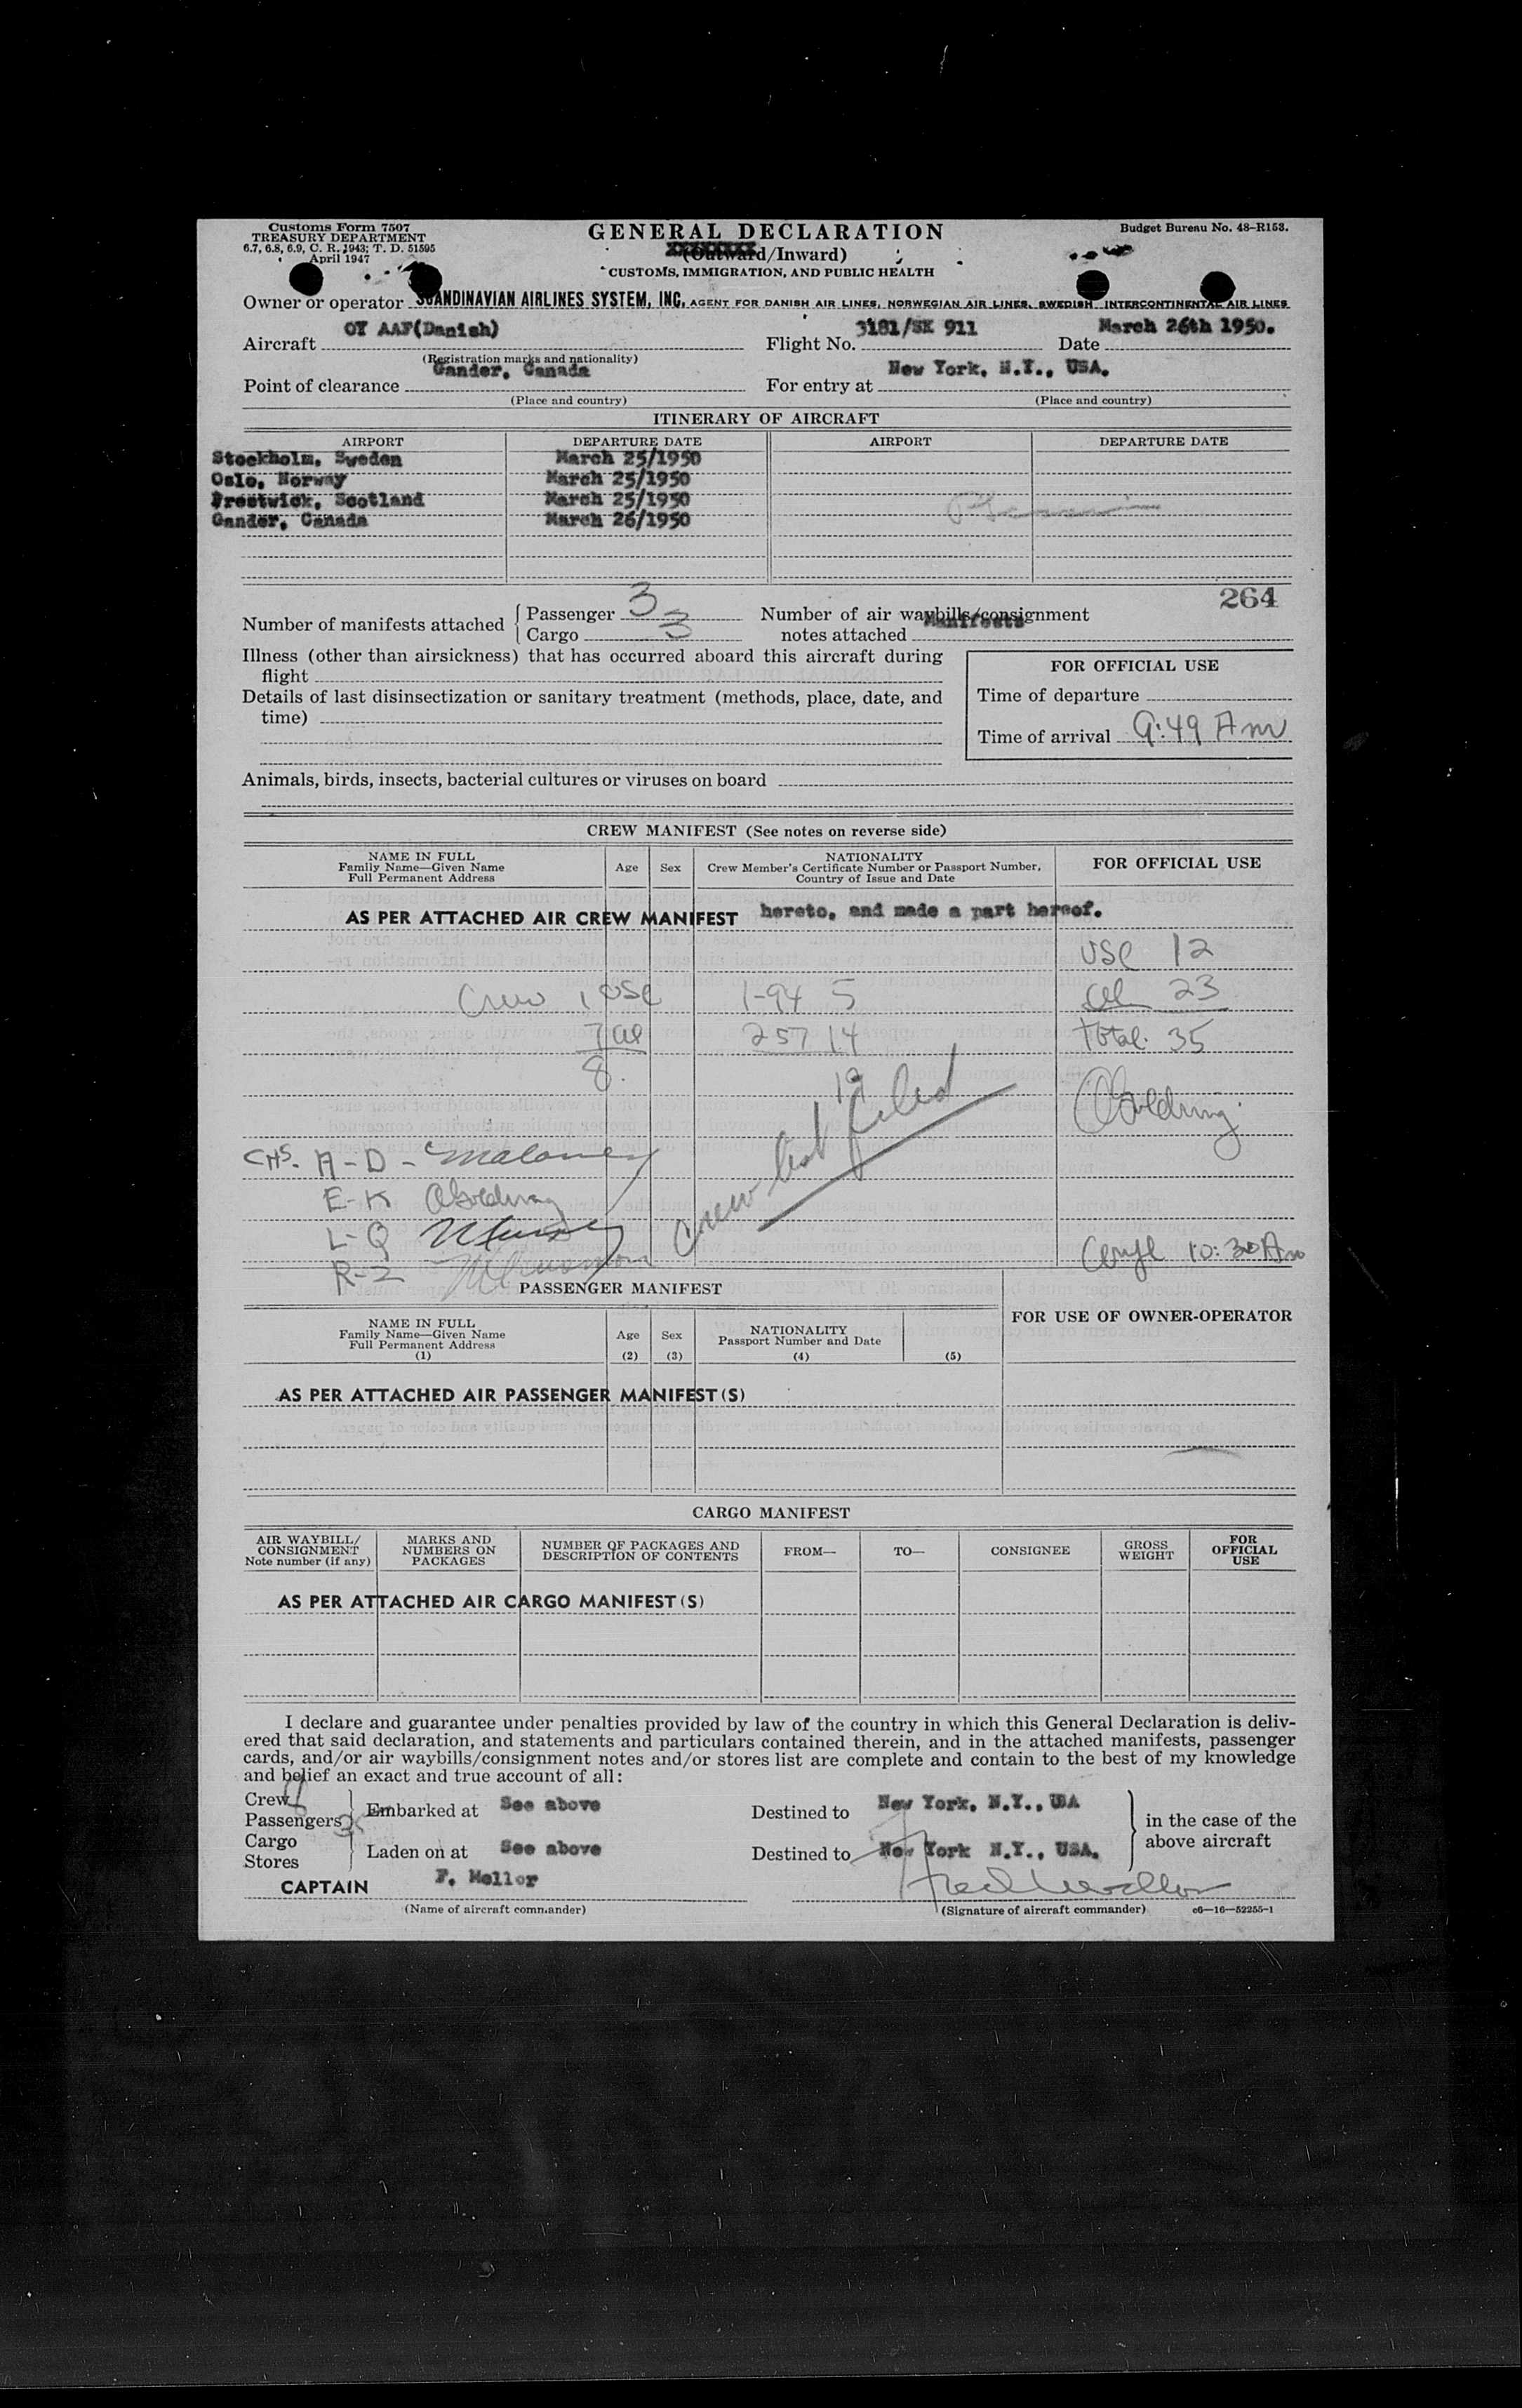 Customs Form 7507
TREASURY DEPARTMENT
6.7, 6.8, 6.9, C. R. 1943; T. D. 51595
April 1947
GENERAL DECLARATION
(Outward/Inward)
CUSTOMS, IMMIGRATION, AND PUBLIC HEALTH
Budget Bureau No. 48-R153.
Owner or operator SCANDINAVIAN AIRLINES SYSTEM, INC. AGENT FOR DANISH AIR LINES, NORWEGIAN AIR LINES, SWEDISH INTERCONTINENTAL AIR LINES
Aircraft OY AAF(Danish) Flight No. 3181/SK 911 Date March 26th 1950.
(Registration marks and nationality)
Point of clearance Gander, Canada For entry at New York, N.Y., USA.
(Place and country) (Place and country)
ITINERARY OF AIRCRAFT
AIRPORT DEPARTURE DATE AIRPORT DEPARTURE DATE
Stockholm, Sweden March 25/1950
Oslo, Norway March 25/1950
Prestwick, Scotland March 25/1950
Gander, Canada March 26/1950
264
Number of manifests attached { Passenger 3 Number of air waybills/consignment
Cargo 3 notes attached Manifests
Illness (other than airsickness) that has occurred aboard this aircraft during
flight
Details of last disinsectization or sanitary treatment (methods, place, date, and
time)
FOR OFFICIAL USE
Time of departure
Time of arrival 9:49 Am
Animals, birds, insects, bacterial cultures or viruses on board
CREW MANIFEST (See notes on reverse side)
NAME IN FULL
Family Name—Given Name
Full Permanent Address
Age
Sex
NATIONALITY
Crew Member's Certificate Number or Passport Number,
Country of Issue and Date
FOR OFFICIAL USE
AS PER ATTACHED AIR CREW MANIFEST hereto, and made a part hereof.
USC 12
Crew 1 USC 1-94 5 al 23
7 al 257 14 Total 35
8 19
Crew list filed
CHS. A-D- Maloney
E-K AGoldring
L-Q
R-Z
10:30 Am
PASSENGER MANIFEST
NAME IN FULL
Family Name—Given Name
Full Permanent Address
(1)
Age
(2)
Sex
(3)
NATIONALITY
Passport Number and Date
(4)
(5)
FOR USE OF OWNER-OPERATOR
AS PER ATTACHED AIR PASSENGER MANIFEST(S)
CARGO MANIFEST
AIR WAYBILL/
CONSIGNMENT
Note number (if any)
MARKS AND
NUMBERS ON
PACKAGES
NUMBER OF PACKAGES AND
DESCRIPTION OF CONTENTS
FROM—
TO—
CONSIGNEE
GROSS
WEIGHT
FOR
OFFICIAL
USE
AS PER ATTACHED AIR CARGO MANIFEST(S)
I declare and guarantee under penalties provided by law of the country in which this General Declaration is deliv-
ered that said declaration, and statements and particulars contained therein, and in the attached manifests, passenger
cards, and/or air waybills/consignment notes and/or stores list are complete and contain to the best of my knowledge
and belief an exact and true account of all:
Crew
Passengers 35 Embarked at See above Destined to New York, N.Y., USA
in the case of the
above aircraft
Cargo
Stores Laden on at See above Destined to New York N.Y., USA.
CAPTAIN F. Mellor
(Name of aircraft commander) (Signature of aircraft commander) c6—16—52255-1